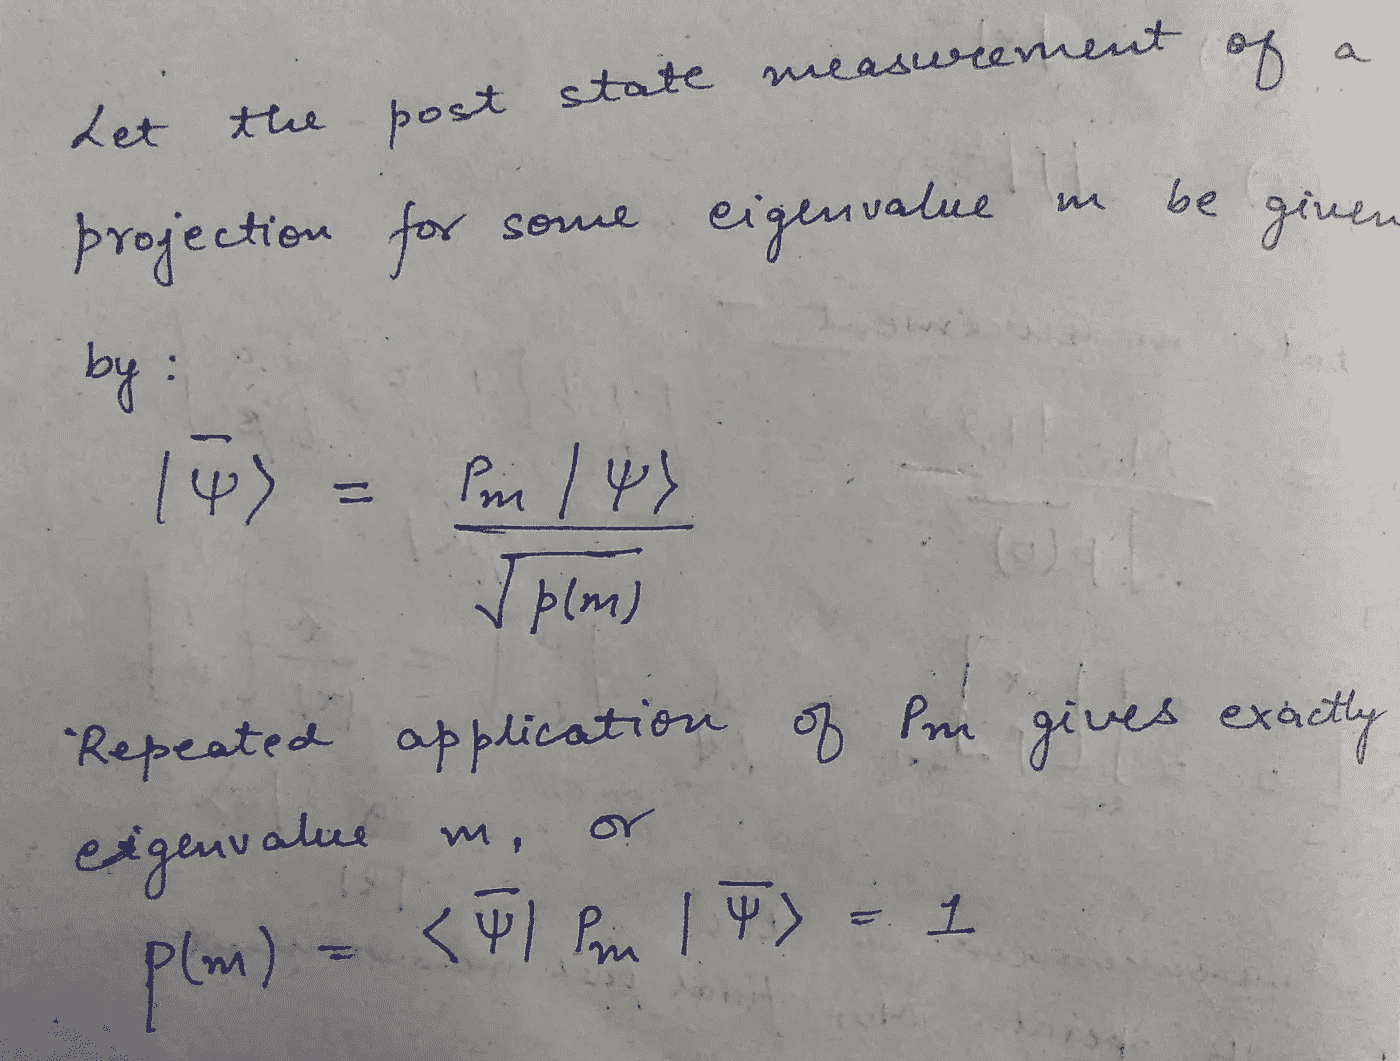 Let the post state measurement of a
projection for some eigenvalue m be given
by :
|ψ̅⟩ = Pm |ψ⟩ / √p(m)
Repeated application of Pm gives exactly
eigenvalue m, or
p(m) = <ψ̅| Pm |ψ̅> = 1